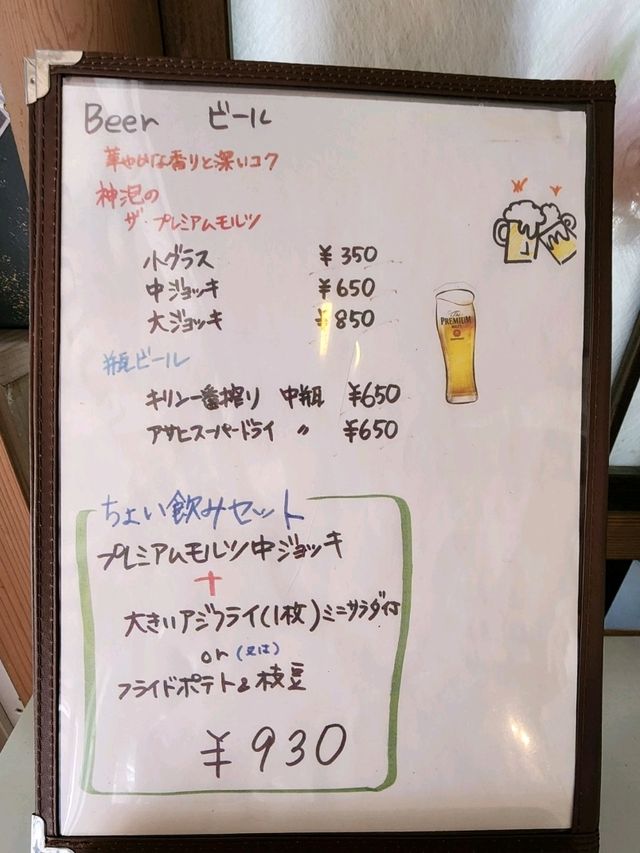 Beer ビール
華やかな香りと深いコク
神泡の
ザ・プレミアムモルツ
小グラス ¥350
中ジョッキ ¥650
大ジョッキ ¥850
The PREMIUM
瓶ビール
キリン一番搾り 中瓶 ¥650
アサヒスーパードライ 〃 ¥650
ちょい飲みセット
プレミアムモルツ中ジョッキ
+
大きいアジフライ(1枚)ミニサラダ付
or(又は)
フライドポテト&枝豆
¥930